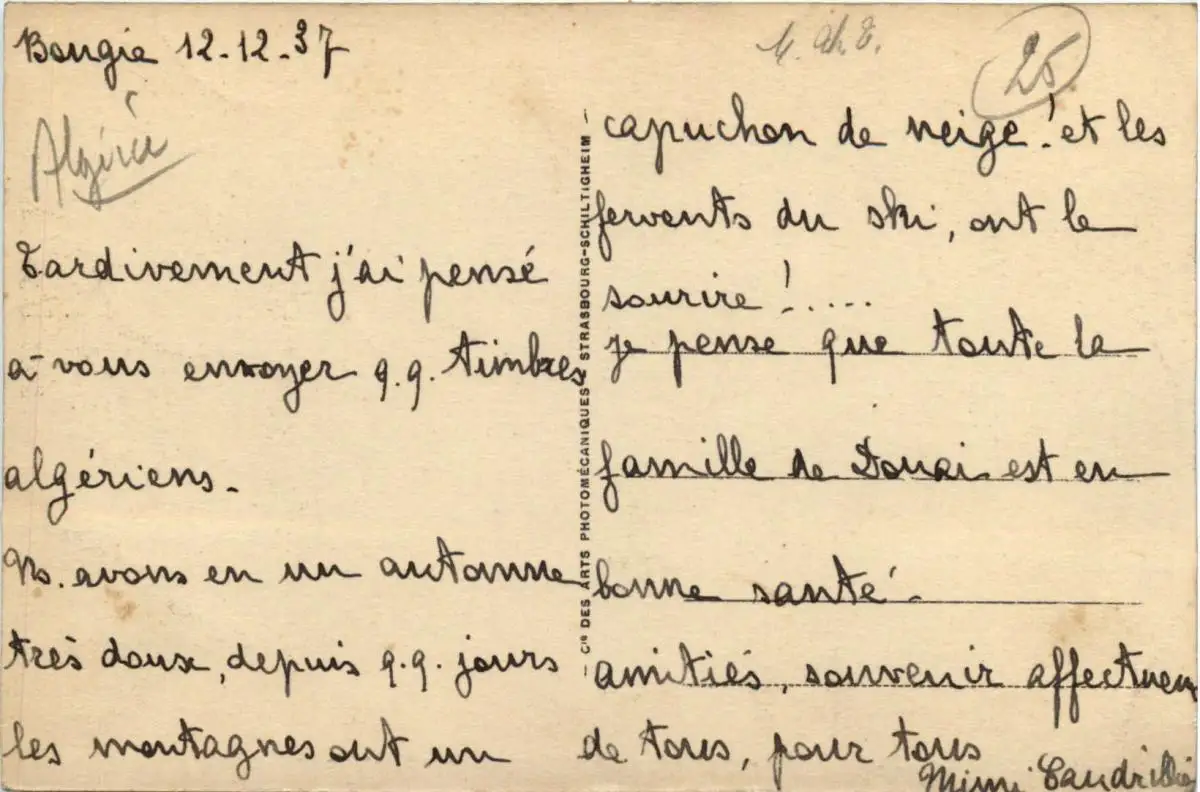 Bougie 12-12-37
Algérie
Tardivement j'ai pensé
à vous envoyer q.q. timbres
algériens.
Ns. avons eu un automne
très doux, depuis q.q. jours
les montagnes ont un
CIE DES ARTS PHOTOMÉCANIQUES STRASBOURG-SCHILTIGHEIM
25
capuchon de neige! et les
fervents du ski, ont le
sourire!....
je pense que toute la
famille de Douai est en
bonne santé.
amitiés, souvenir affectueux
de tous, pour tous
Mimi